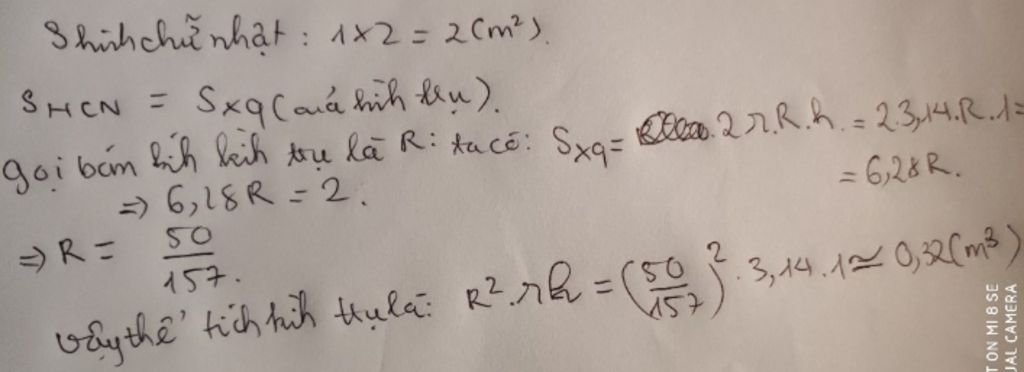 S hình chữ nhật : 1 x 2 = 2 (m²).
S HCN = Sxq (của hình trụ).
gọi bán kính hình trụ là R : ta có : Sxq = 2π.R.h. = 2.3,14.R.1 =
= 6,28R.
=> 6,28R = 2.
=> R = 50/157.
Vậy thể tích hình trụ là: R².πh = (50/157)².3,14.1 ≃ 0,32 (m³)
T ON MI 8 SE
UAL CAMERA